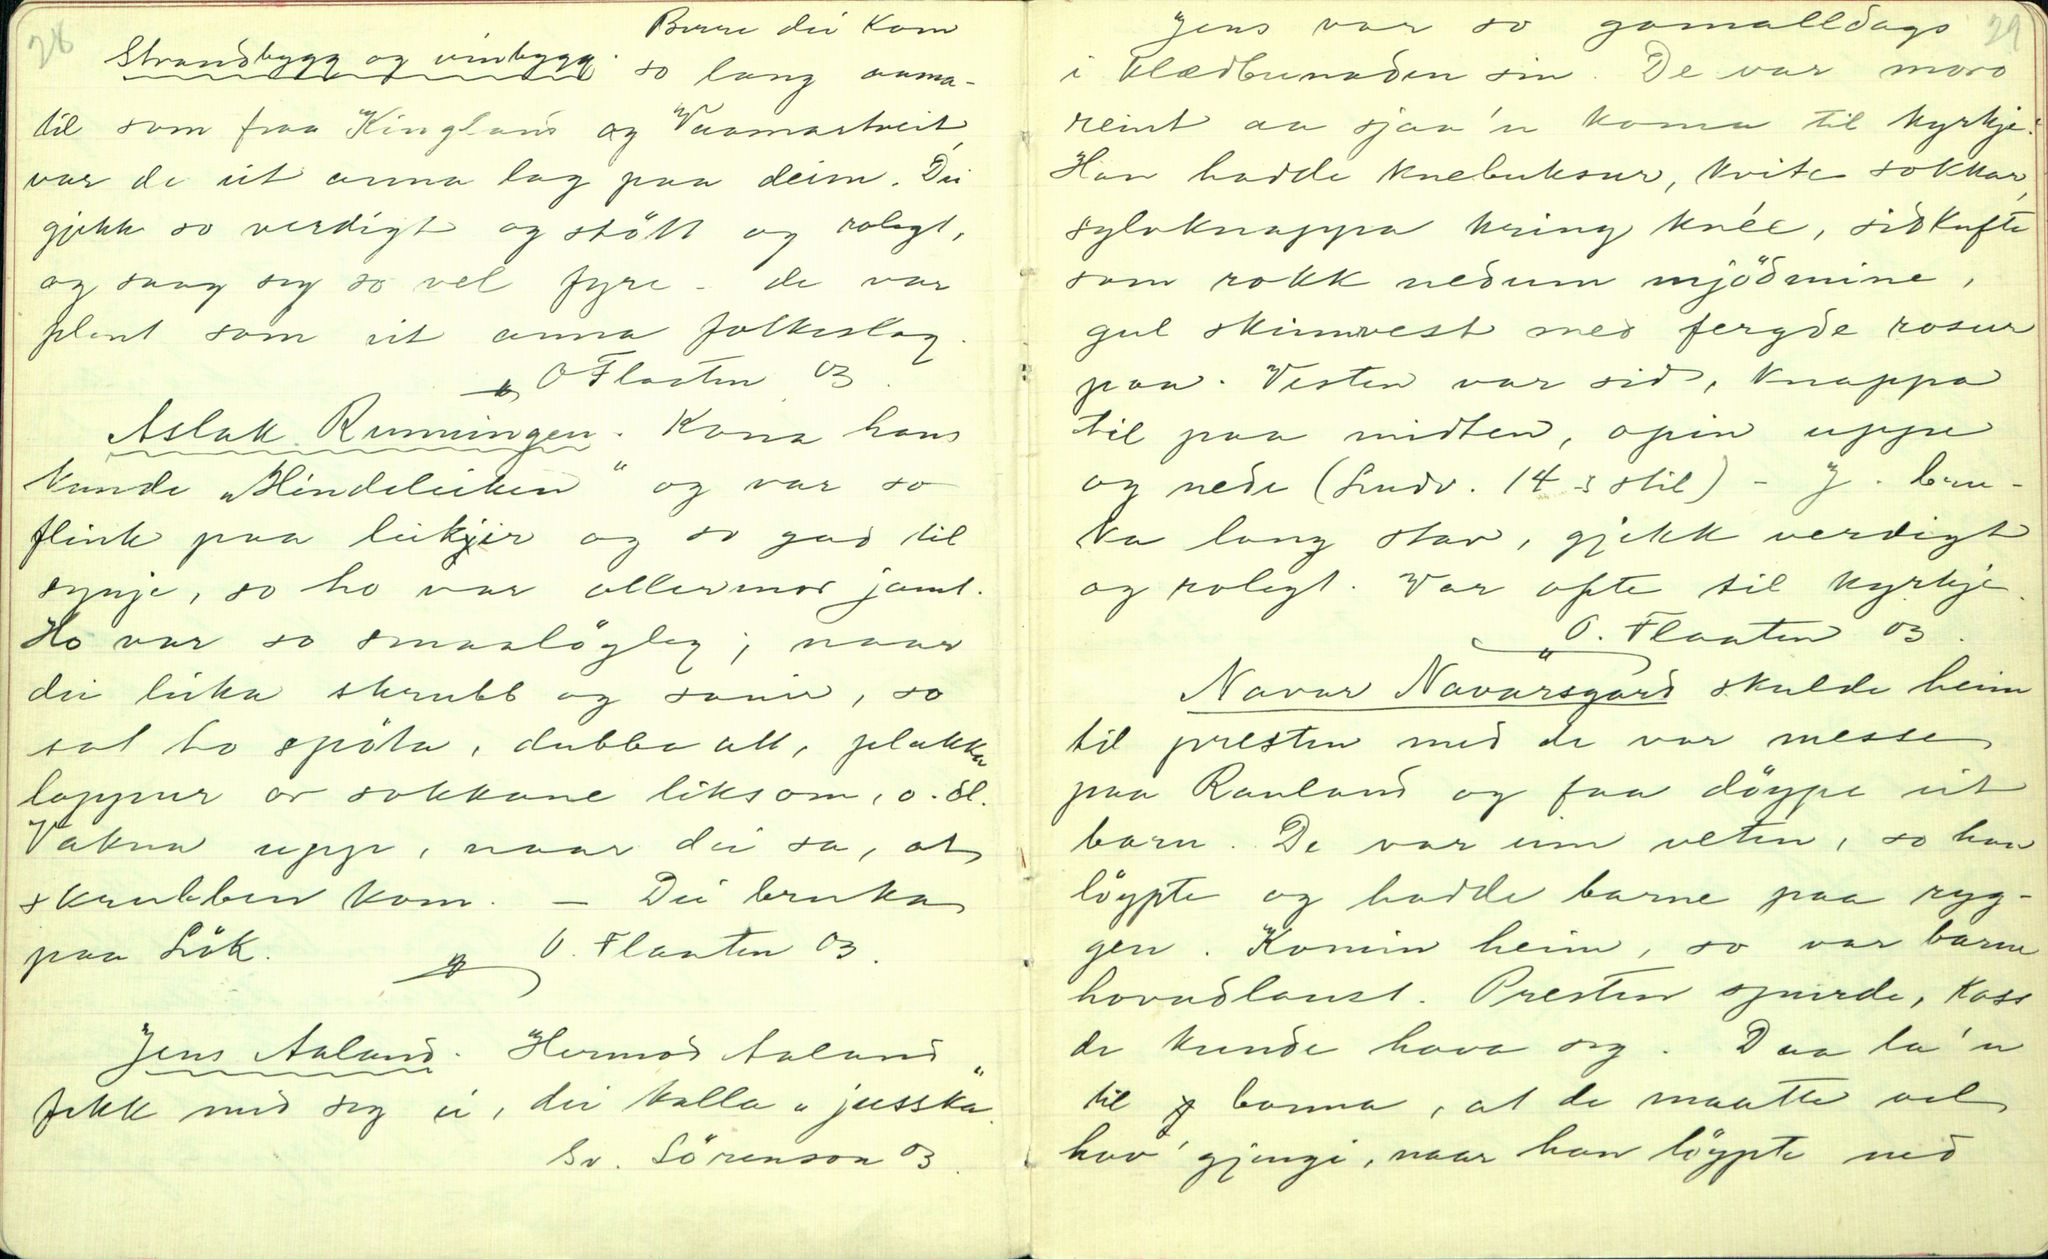 28
Strandbygg og vinbygg. Berre dei kom
so lang aama-
til som fraa Kingland og Vaamartveit,
var de eit anna lag paa deim. Dei
gjekk so verdigt og stött og rolegt,
og saag seg so vel fyre - de var
plent som eit anna folkeslag.
O Flaaten 03.
Aslak Runningen. Kona hans
kunde „Hindeleiken" og var so
flink paa leikjir og so god til
synje, so ho var allermod jamt.
Ho var so smaalögleg; naar
dei leika skrubb og sauir, so
sat ho spöta, dubba att, plukka
loppur or sokkane liksom, o. sl.
Vakna upp, naar dei sa, at
skrubben kom. — Dei bruka
paa Lök.
O. Flaaten 03.
Jens Aaland. Hermod Aaland
fekk med seg ei, dei kalla „jusska".
Sv. Sörenson 03.
29
Jens var so gamalldags
i klædbunaden sin. De var moro
reint aa sjaa'n koma til kyrkje.
Han hadde knebuksur, kvite sokkar,
sylvknappa kring knée, sidkufte
som rokk nedum mjödmine,
gul skinnvest med fergde rosur
paa. Vesten var sid, knappa
til paa midten, open uppe
og nede (Ludv. 14 s stil) - J. bru-
ka lang stav, gjekk verdigt
og rolegt. Var ofte til kyrkje.
O. Flaaten 03.
Navar Navarsgard skulde heim
til presten med de var messe
paa Rauland og faa döype eit
barn. De var um veten, so han
löypte og hadde barne paa ryg-
gen. Komin heim, so var barne
hovudlaust. Presten spurde, koss
de kunde hava seg. Daa la'n
til banna, at de maatte vel
hav' gjengi, naar han löypte ned